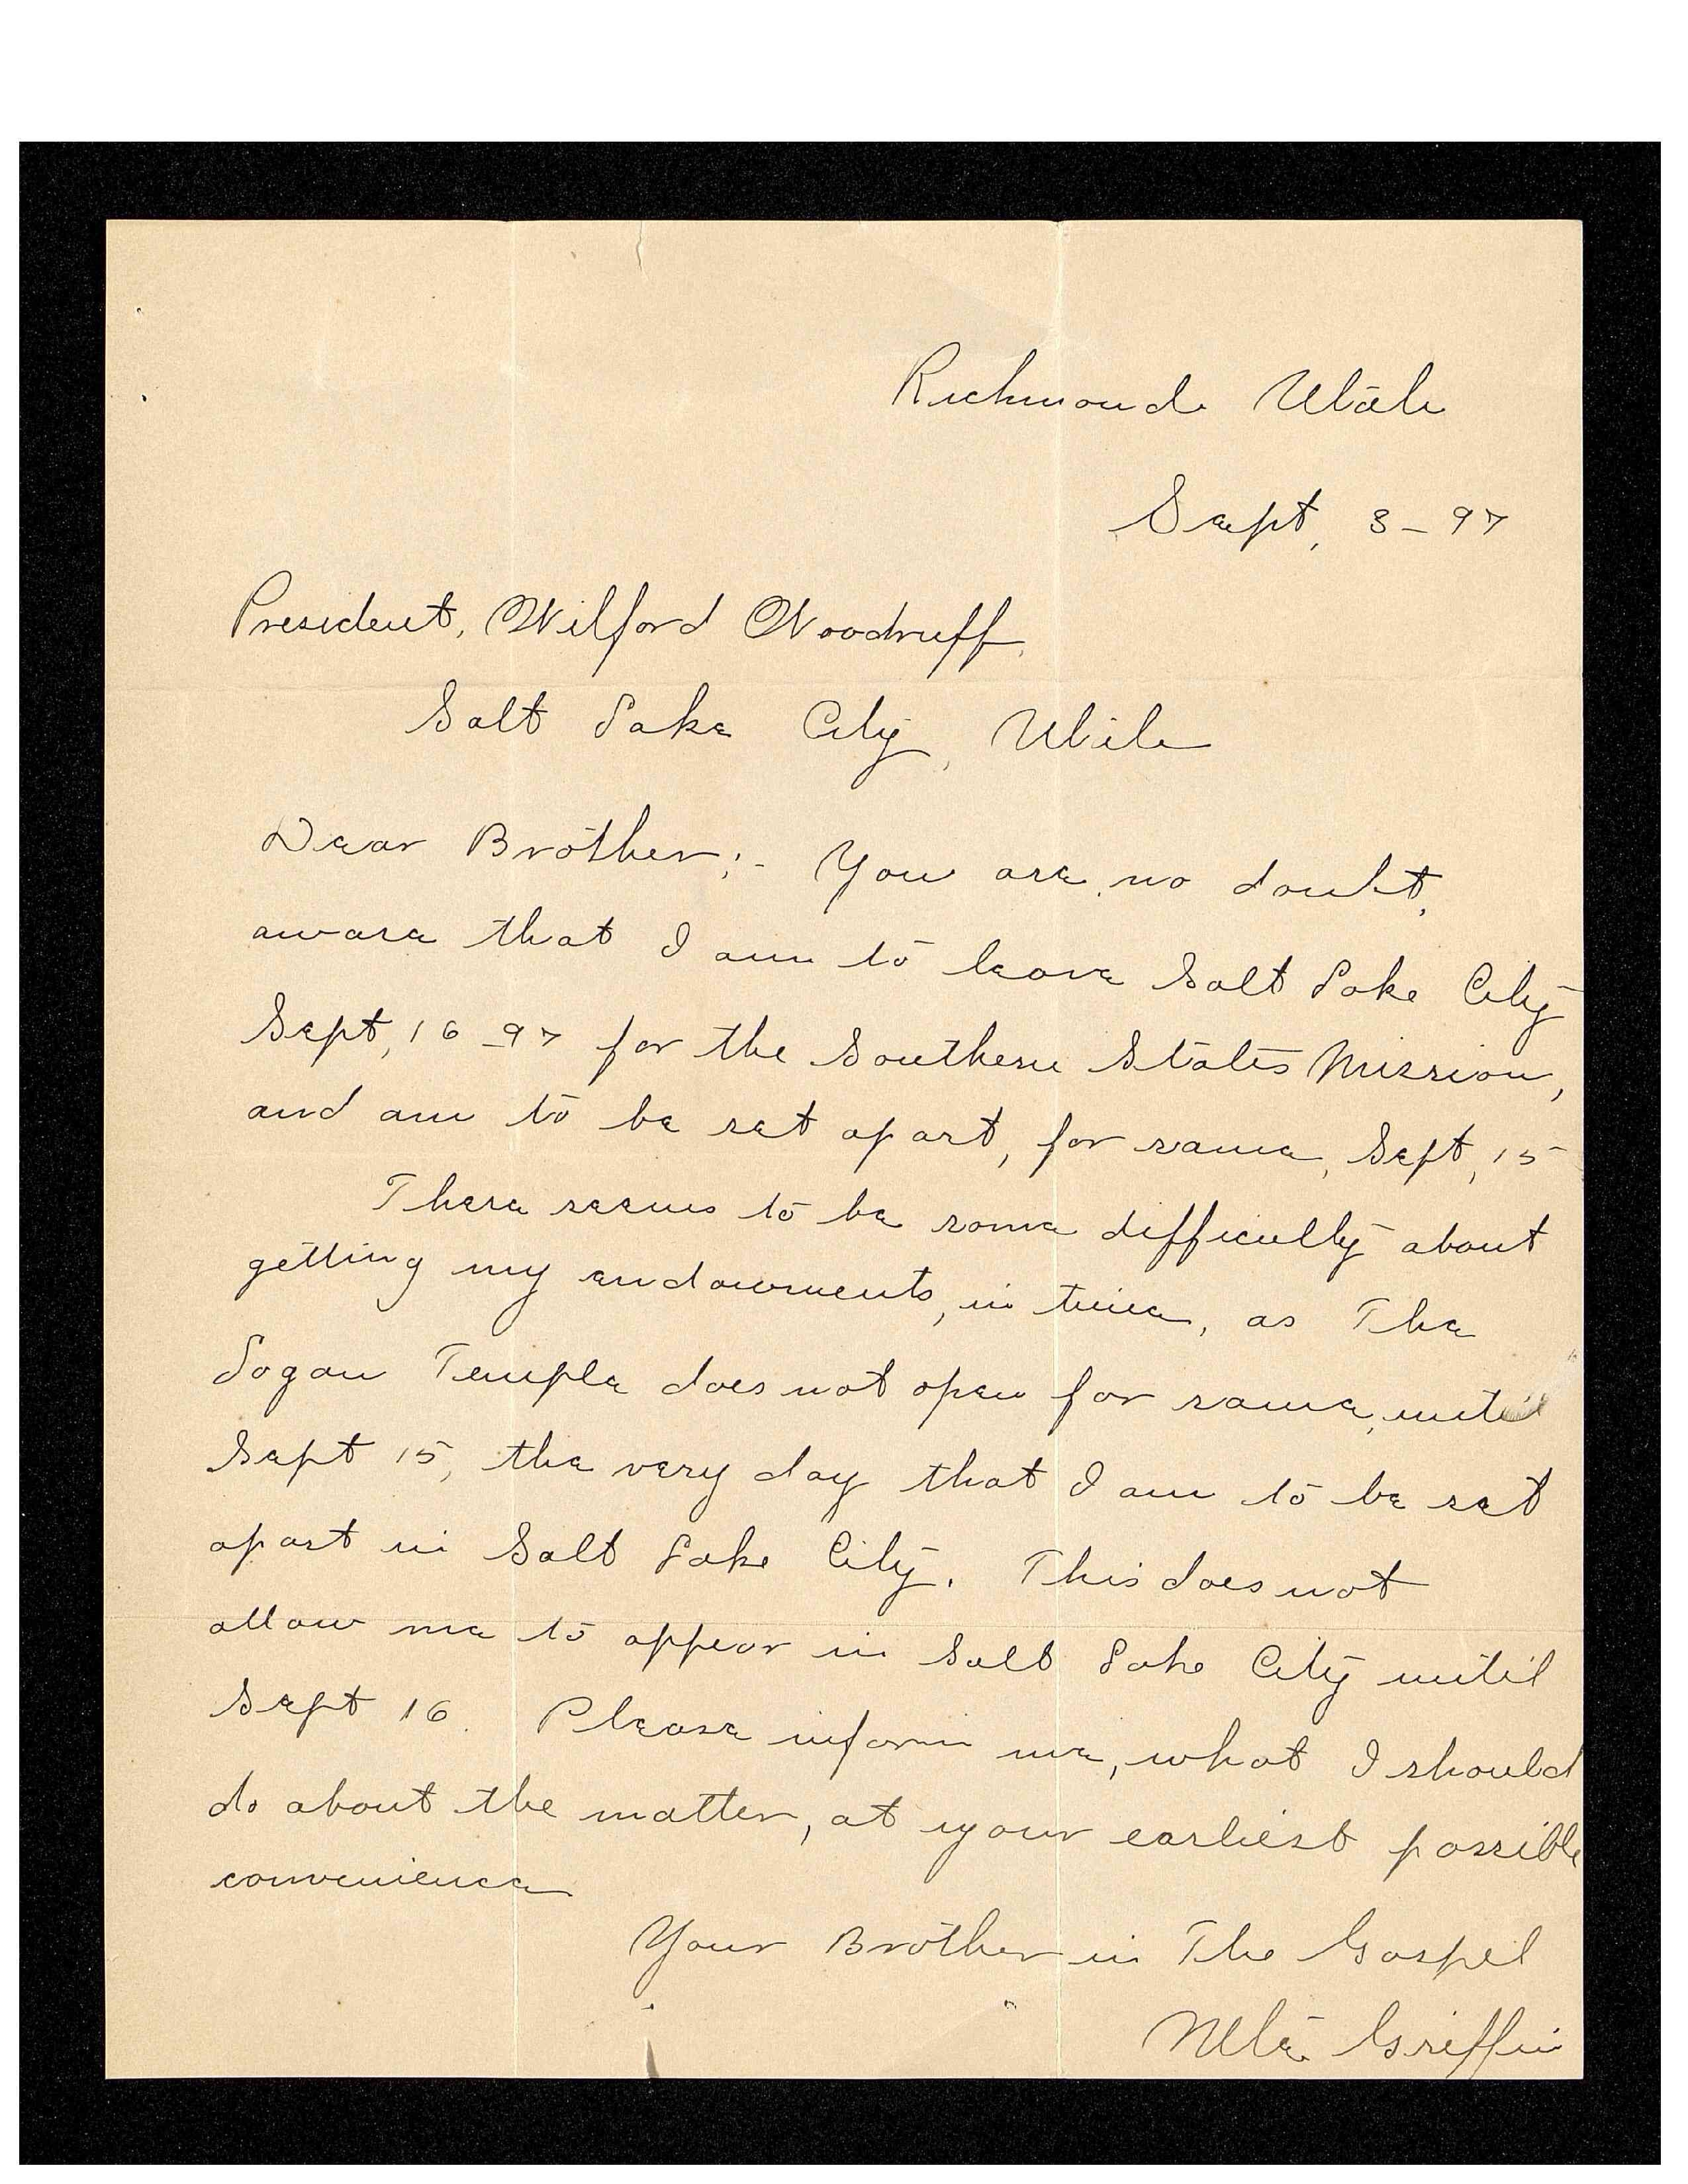 Richmond Utah
Sept, 3-97
President, Wilford Woodruff,
Salt Lake City, Utah
Dear Brother;- You are, no doubt,
aware that I am to leave Salt Lake City
Sept, 16-97 for the Southern States Mission,
and am to be set apart, for same, Sept, 15
There seems to be some difficulty about
getting my endowments, in time, as The
Logan Temple does not open for same, until
Sept 15, the very day that I am to be set
apart in Salt Lake City. This does not
allow me to appear in Salt Lake City until
Sept 16. Please inform me, what I should
do about the matter, at your earliest possible
convenience
Your Brother in The Gospel
Griffin